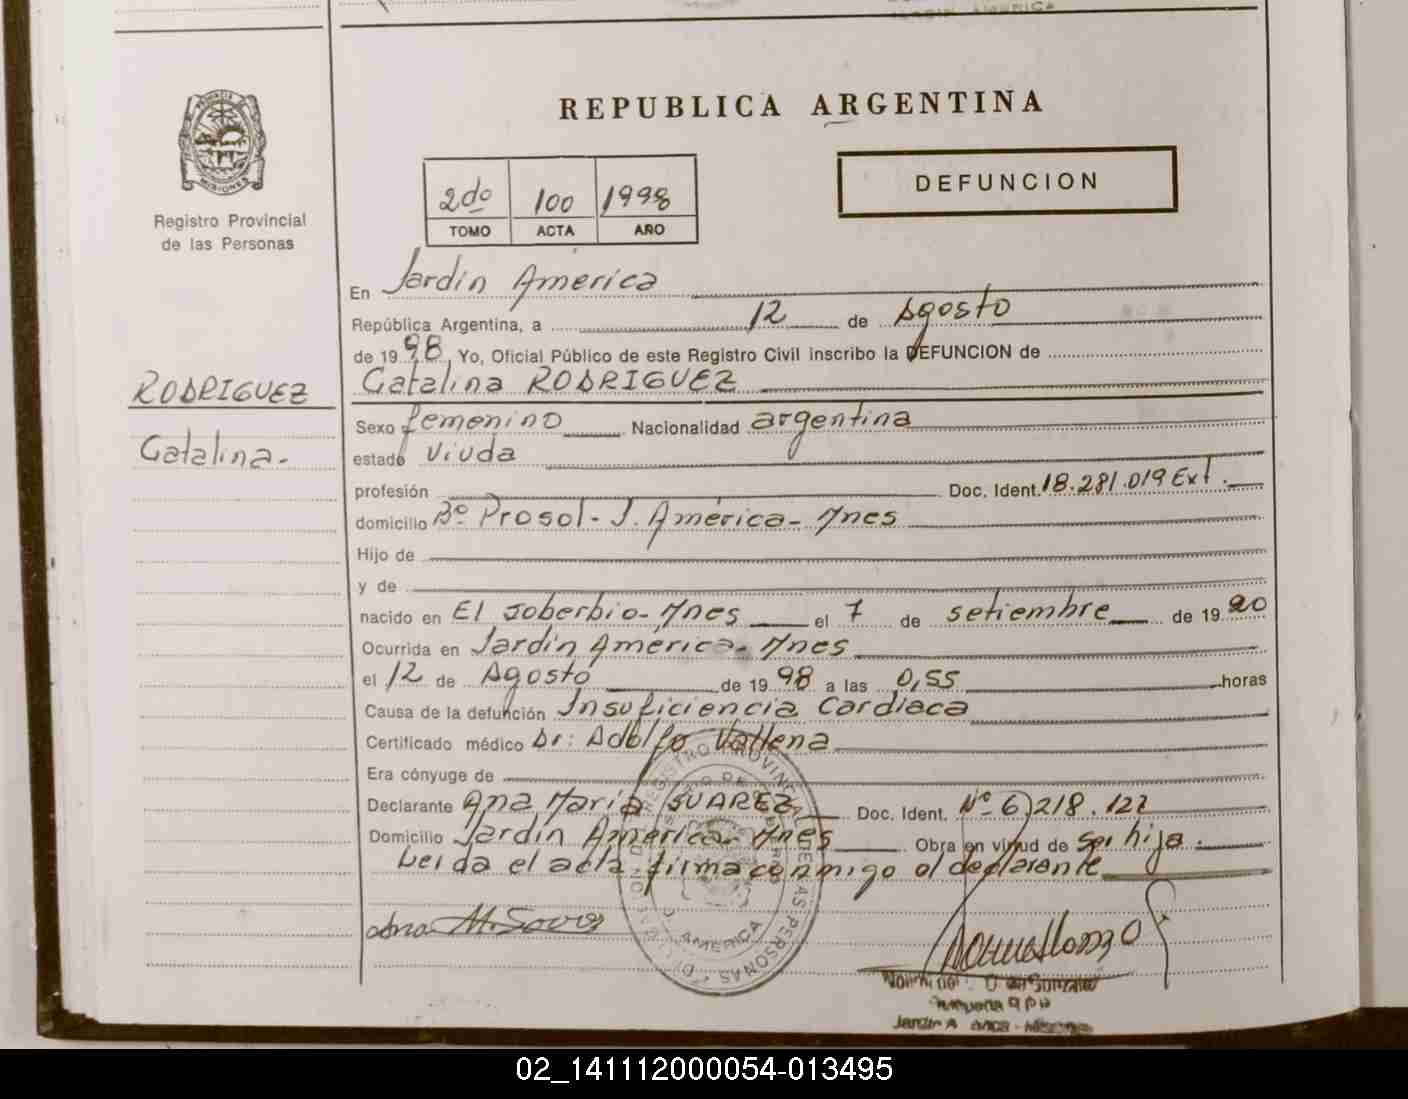 REPUBLICA ARGENTINA
PROVINCIA DE
MISIONES
Registro Provincial
de las Personas
2do 100 1998
TOMO ACTA AÑO
DEFUNCION
En Jardin America
República Argentina, a 12 de Agosto
de 1998, Yo, Oficial Público de este Registro Civil inscribo la DEFUNCION de
RODRIGUEZ
Catalina.-
Catalina RODRIGUEZ
Sexo femenino Nacionalidad argentina
estado viuda
profesión Doc. Ident. 18.281.019 Ext.
domicilio Bº Prosol - J. América - Mnes
Hijo de
y de
nacido en El Soberbio - Mnes el 7 de setiembre de 1920
Ocurrida en Jardin America - Mnes
el 12 de Agosto de 1998 a las 0,55 horas
Causa de la defunción Insuficiencia Cardiaca
Certificado médico Dr: Adolfo Vallena
Era cónyuge de
Declarante Ana Maria SUAREZ Doc. Ident. Nº 6.218.122
Domicilio Jardin America - Mnes Obra en virtud de ser hija.
Leida el acta firma conmigo el declarante
REGISTRO PROVINCIAL DE LAS PERSONAS
AMERICA
02_141112000054-013495